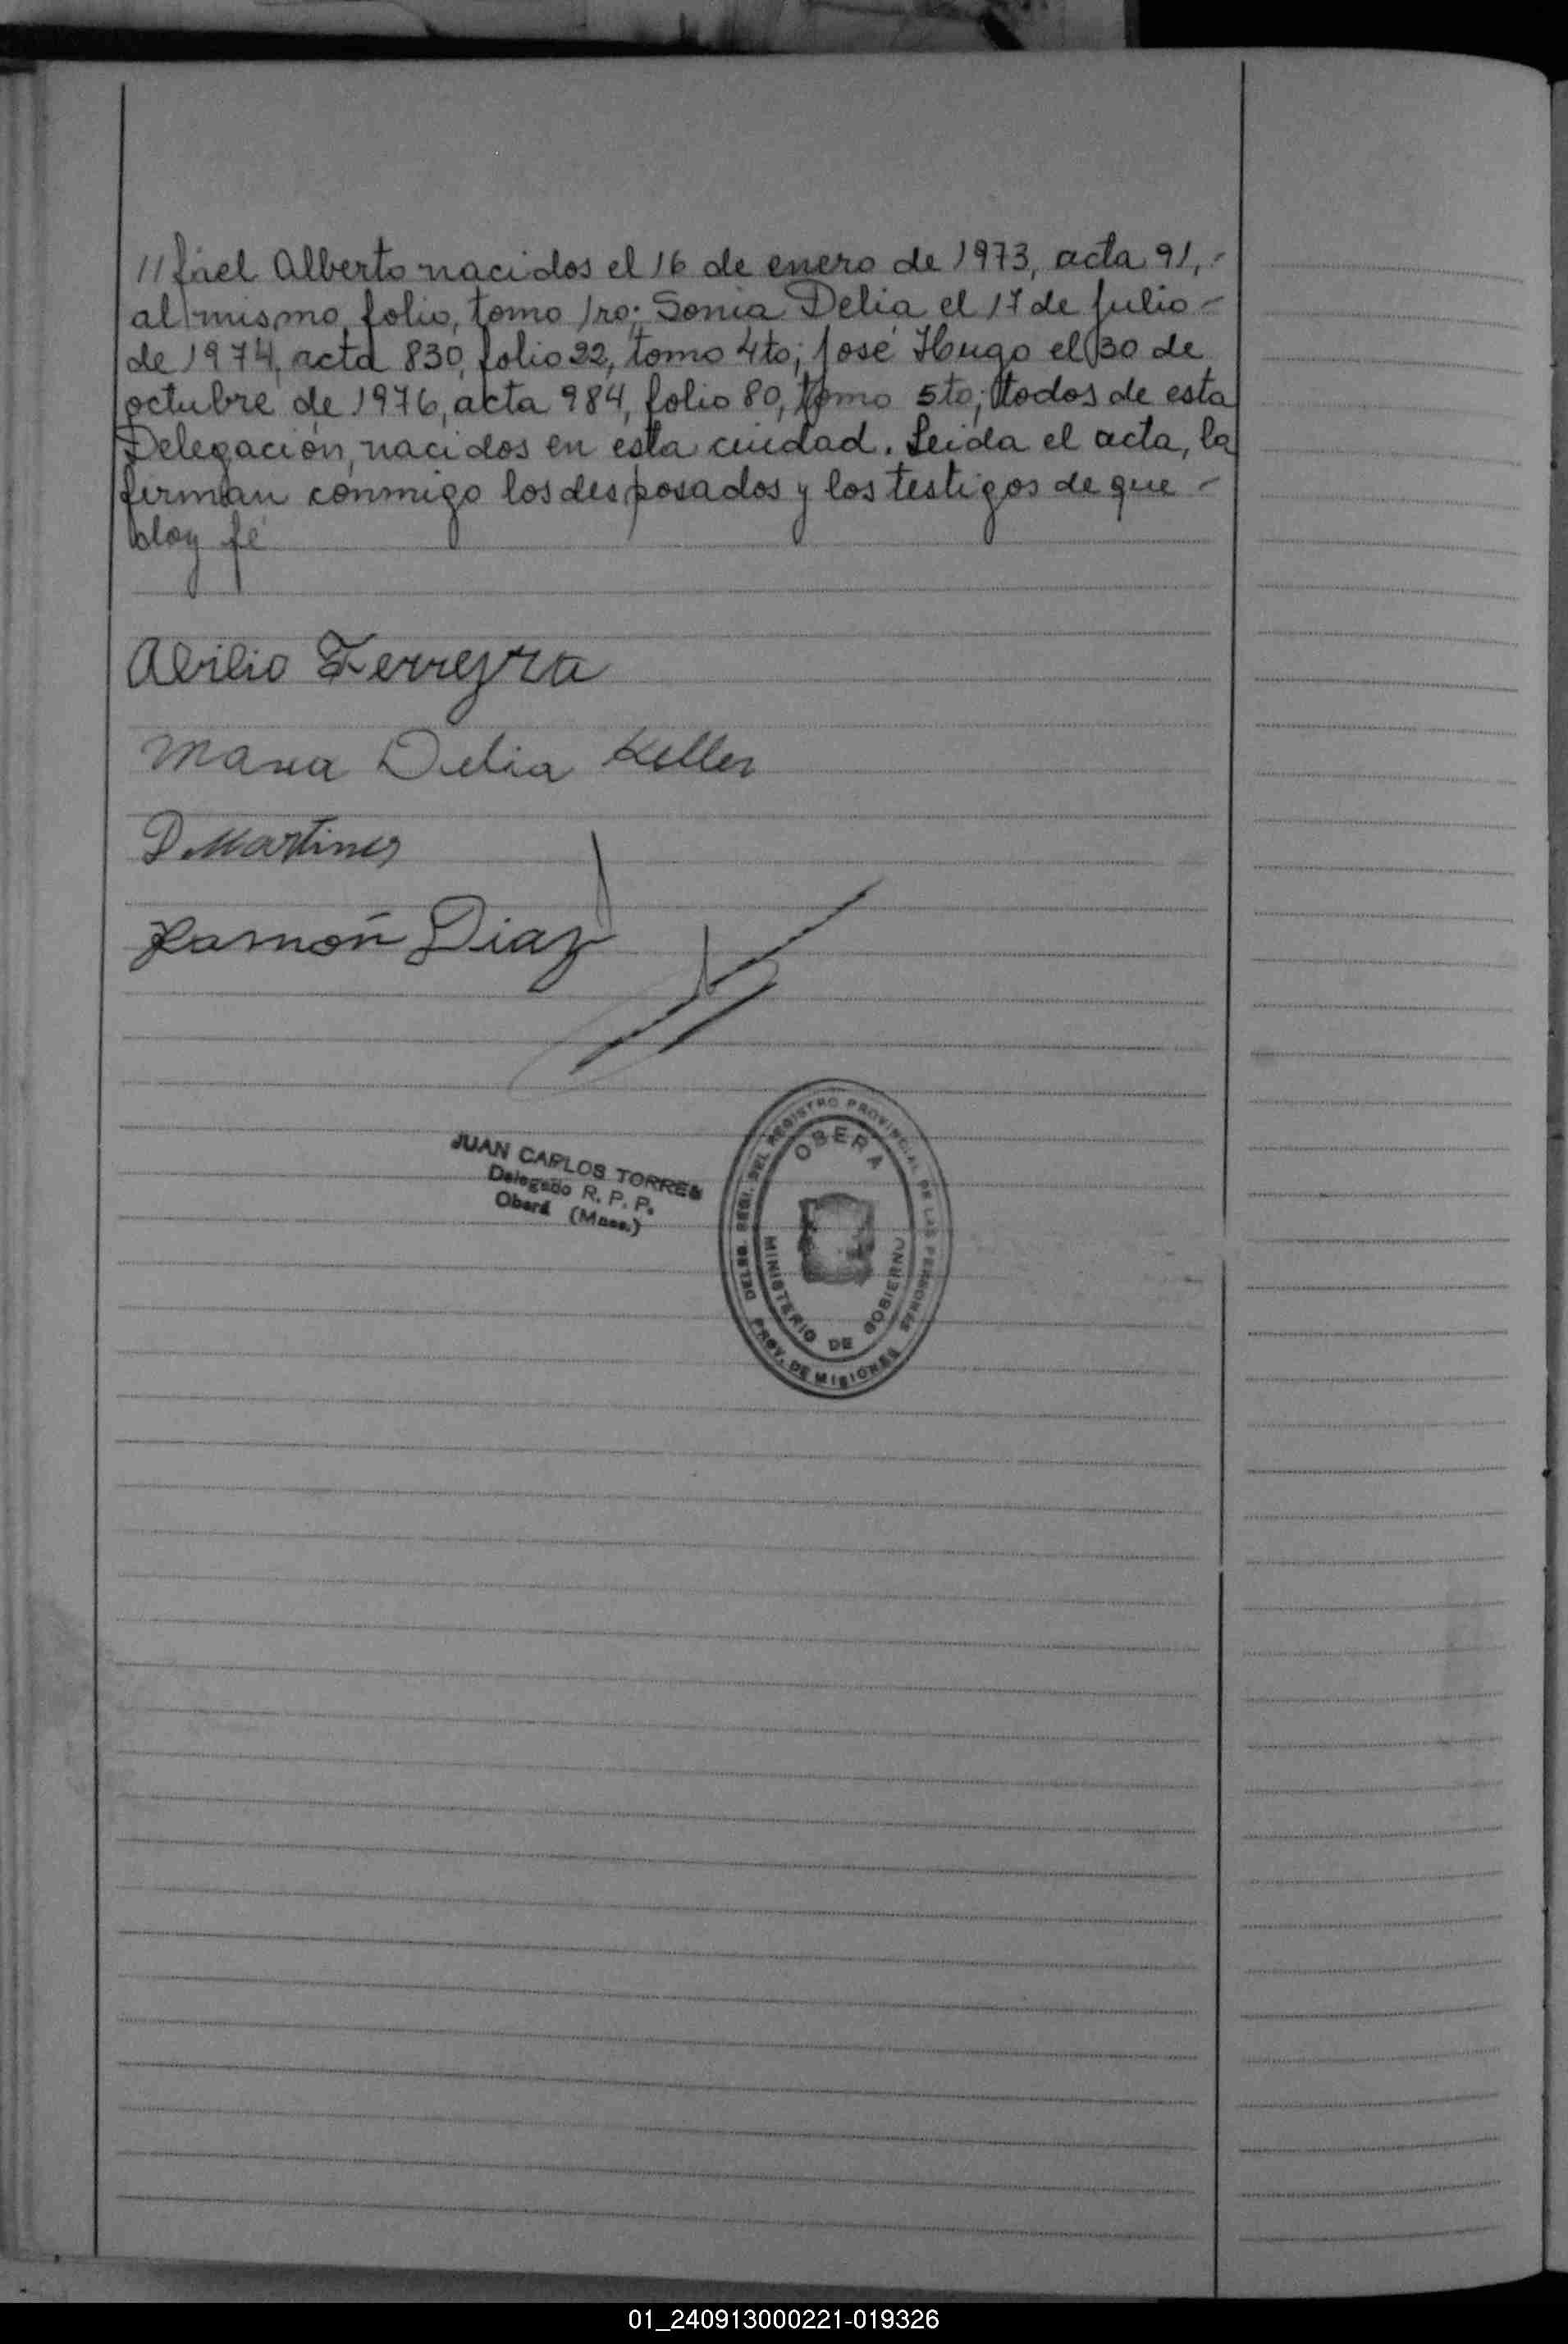 //fael Alberto nacidos el 16 de enero de 1973, acta 91,-
al mismo folio, tomo 1ro; Sonia Delia el 17 de Julio -
de 1974, acta 830, folio 22, tomo 4to; José Hugo el 30 de
octubre de 1976, acta 984, folio 80, tomo 5to; todos de esta
Delegación, nacidos en esta ciudad. Leida el acta, la
firman conmigo los desposados y los testigos de que -
doy fé
Abilio Ferreyra
Maria Delia Keller
D Martinez
Ramón Diaz
JUAN CARLOS TORRES
Delegado R. P. P.
Oberá (Mnes.)
DELEG. REGI. DEL REGISTRO PROVINCIAL DE LAS PERSONAS
OBERA
MINISTERIO DE GOBIERNO
PROV. DE MISIONES
01_240913000221-019326